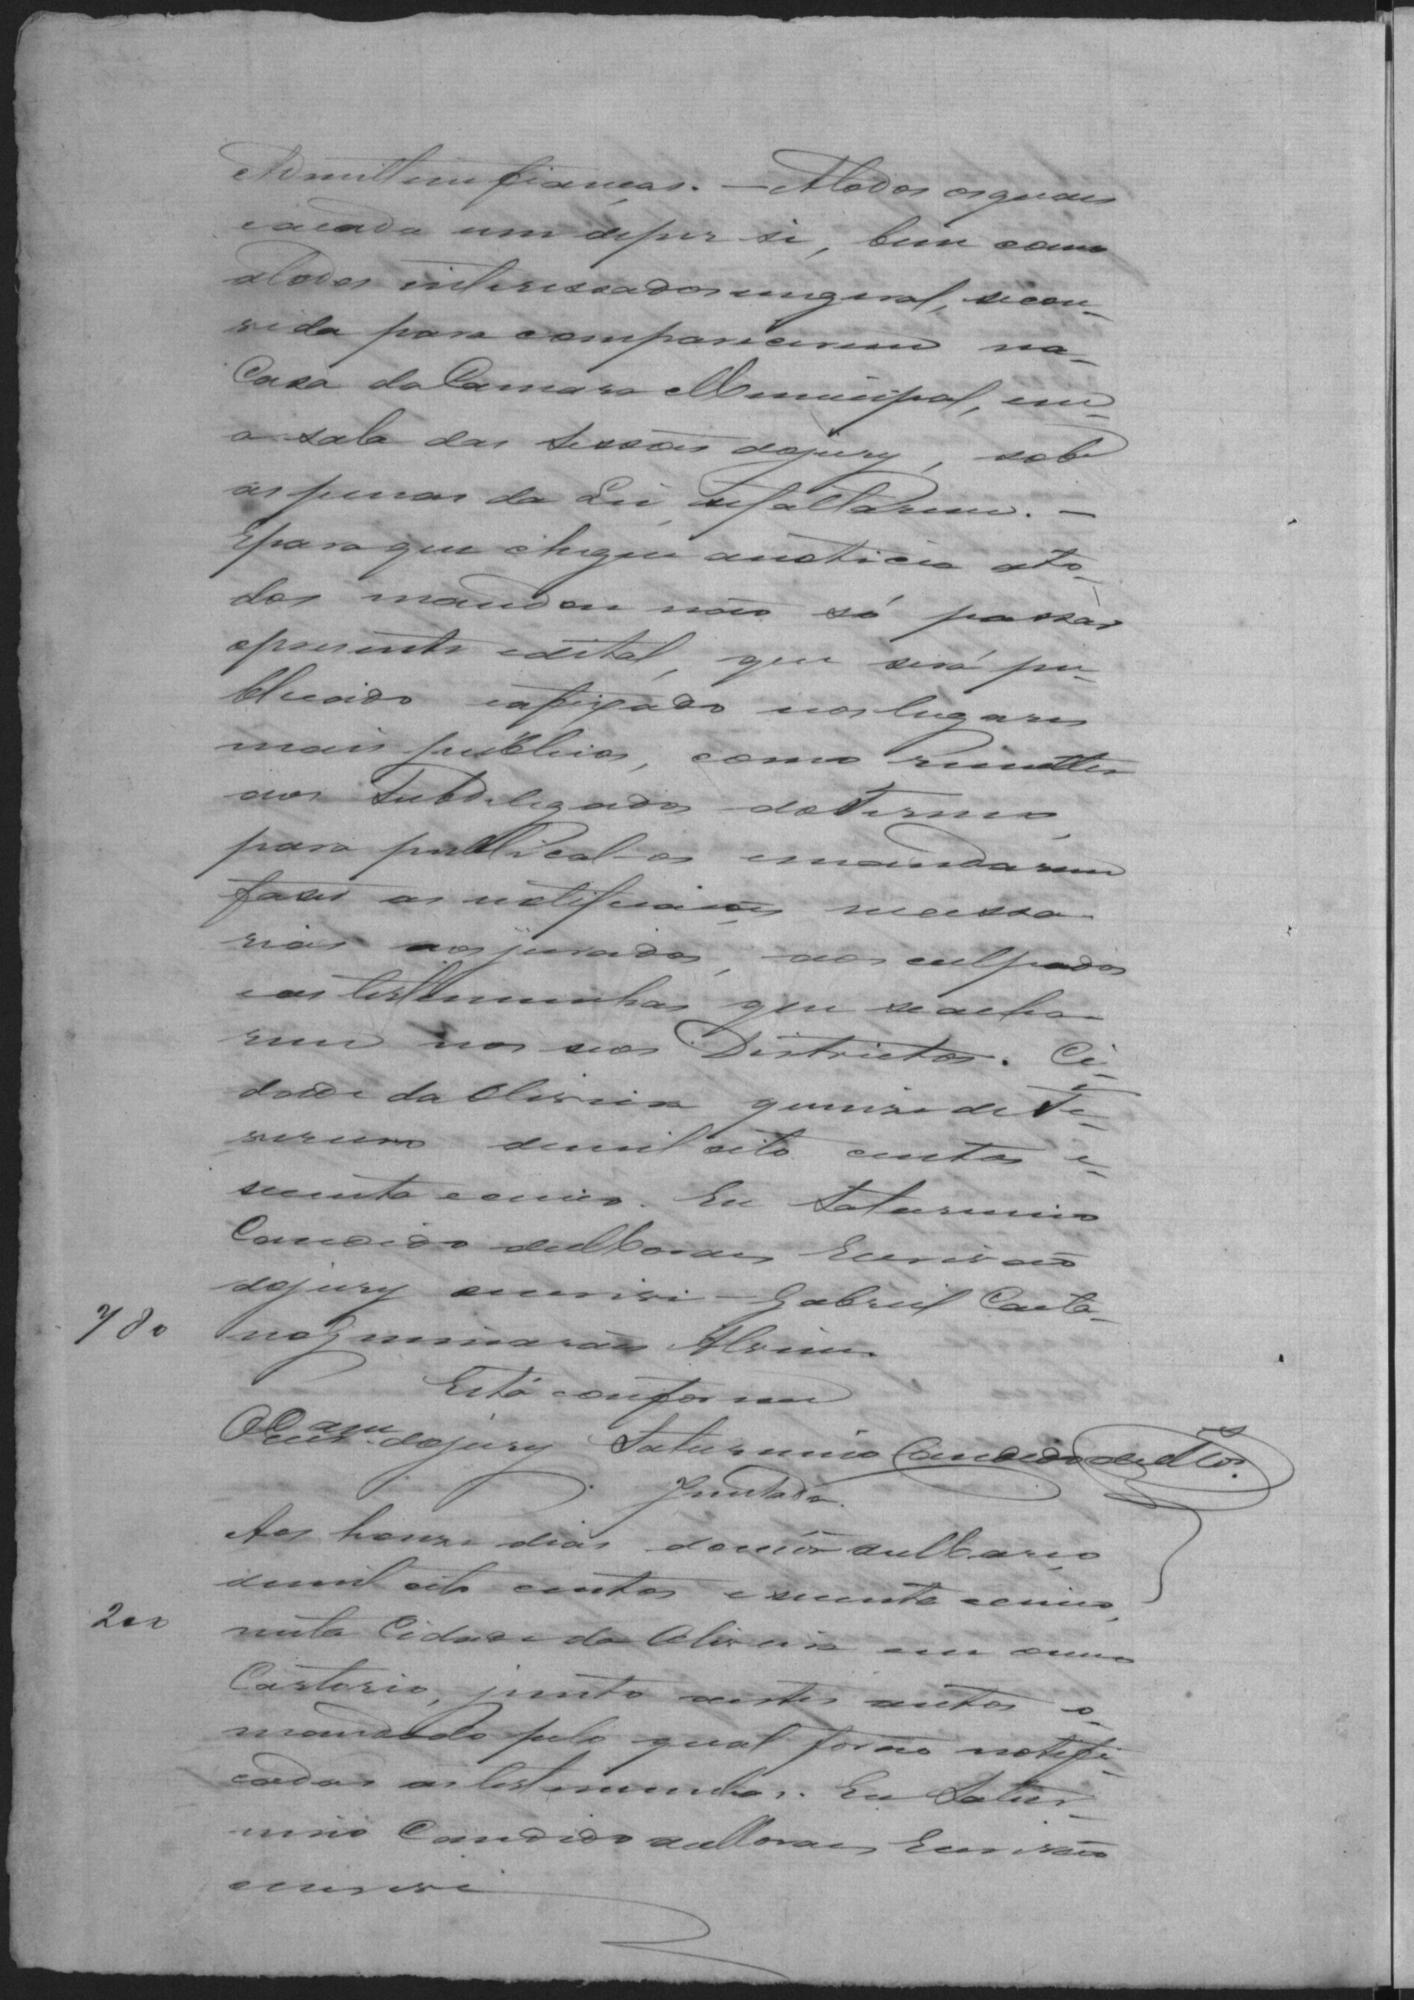 Admittem fianças. — A todos os quaes
e a cada um de per si, bem como
a todos interessados em geral, se con-
vida para comparecerem na
Casa da Camara Municipal, em
a sala das sessões do jury, sob
as penas da Lei, se faltarem. —
E para que chegue a noticia a to-
dos mandou não só passar
o presente edital, que será pu-
blicado e afixado nos lugares
mais publicos, como remetter
aos Subdelegados do Termo,
para publical-os e mandarem
fazer as notificações necessa-
rias aos jurados, aos culpados
e as testemunhas que se acha-
rem nos seos Districtos. Ci-
dade da Oliveira quinze de Fe-
vereiro de mil oito centos e
secenta e cinco. Eu Saturnino
Candido de Moraes Escrivão
do jury o escrevi — Gabriel Caeta-
780 no Guimarães Alvim.
Está conforme
O Escram do jury Saturnino Candido de Mos.
Juntada.
Aos honze dias do mês de Março
de mil oito centos e secenta e cinco,
200 nesta Cidade da Oliveira em o meu
Cartorio, junto a estes autos o
mandado pelo qual forão notifi-
cadas as testemunhas. Eu Satur-
nino Candido de Moraes Escrivão
o escrevi